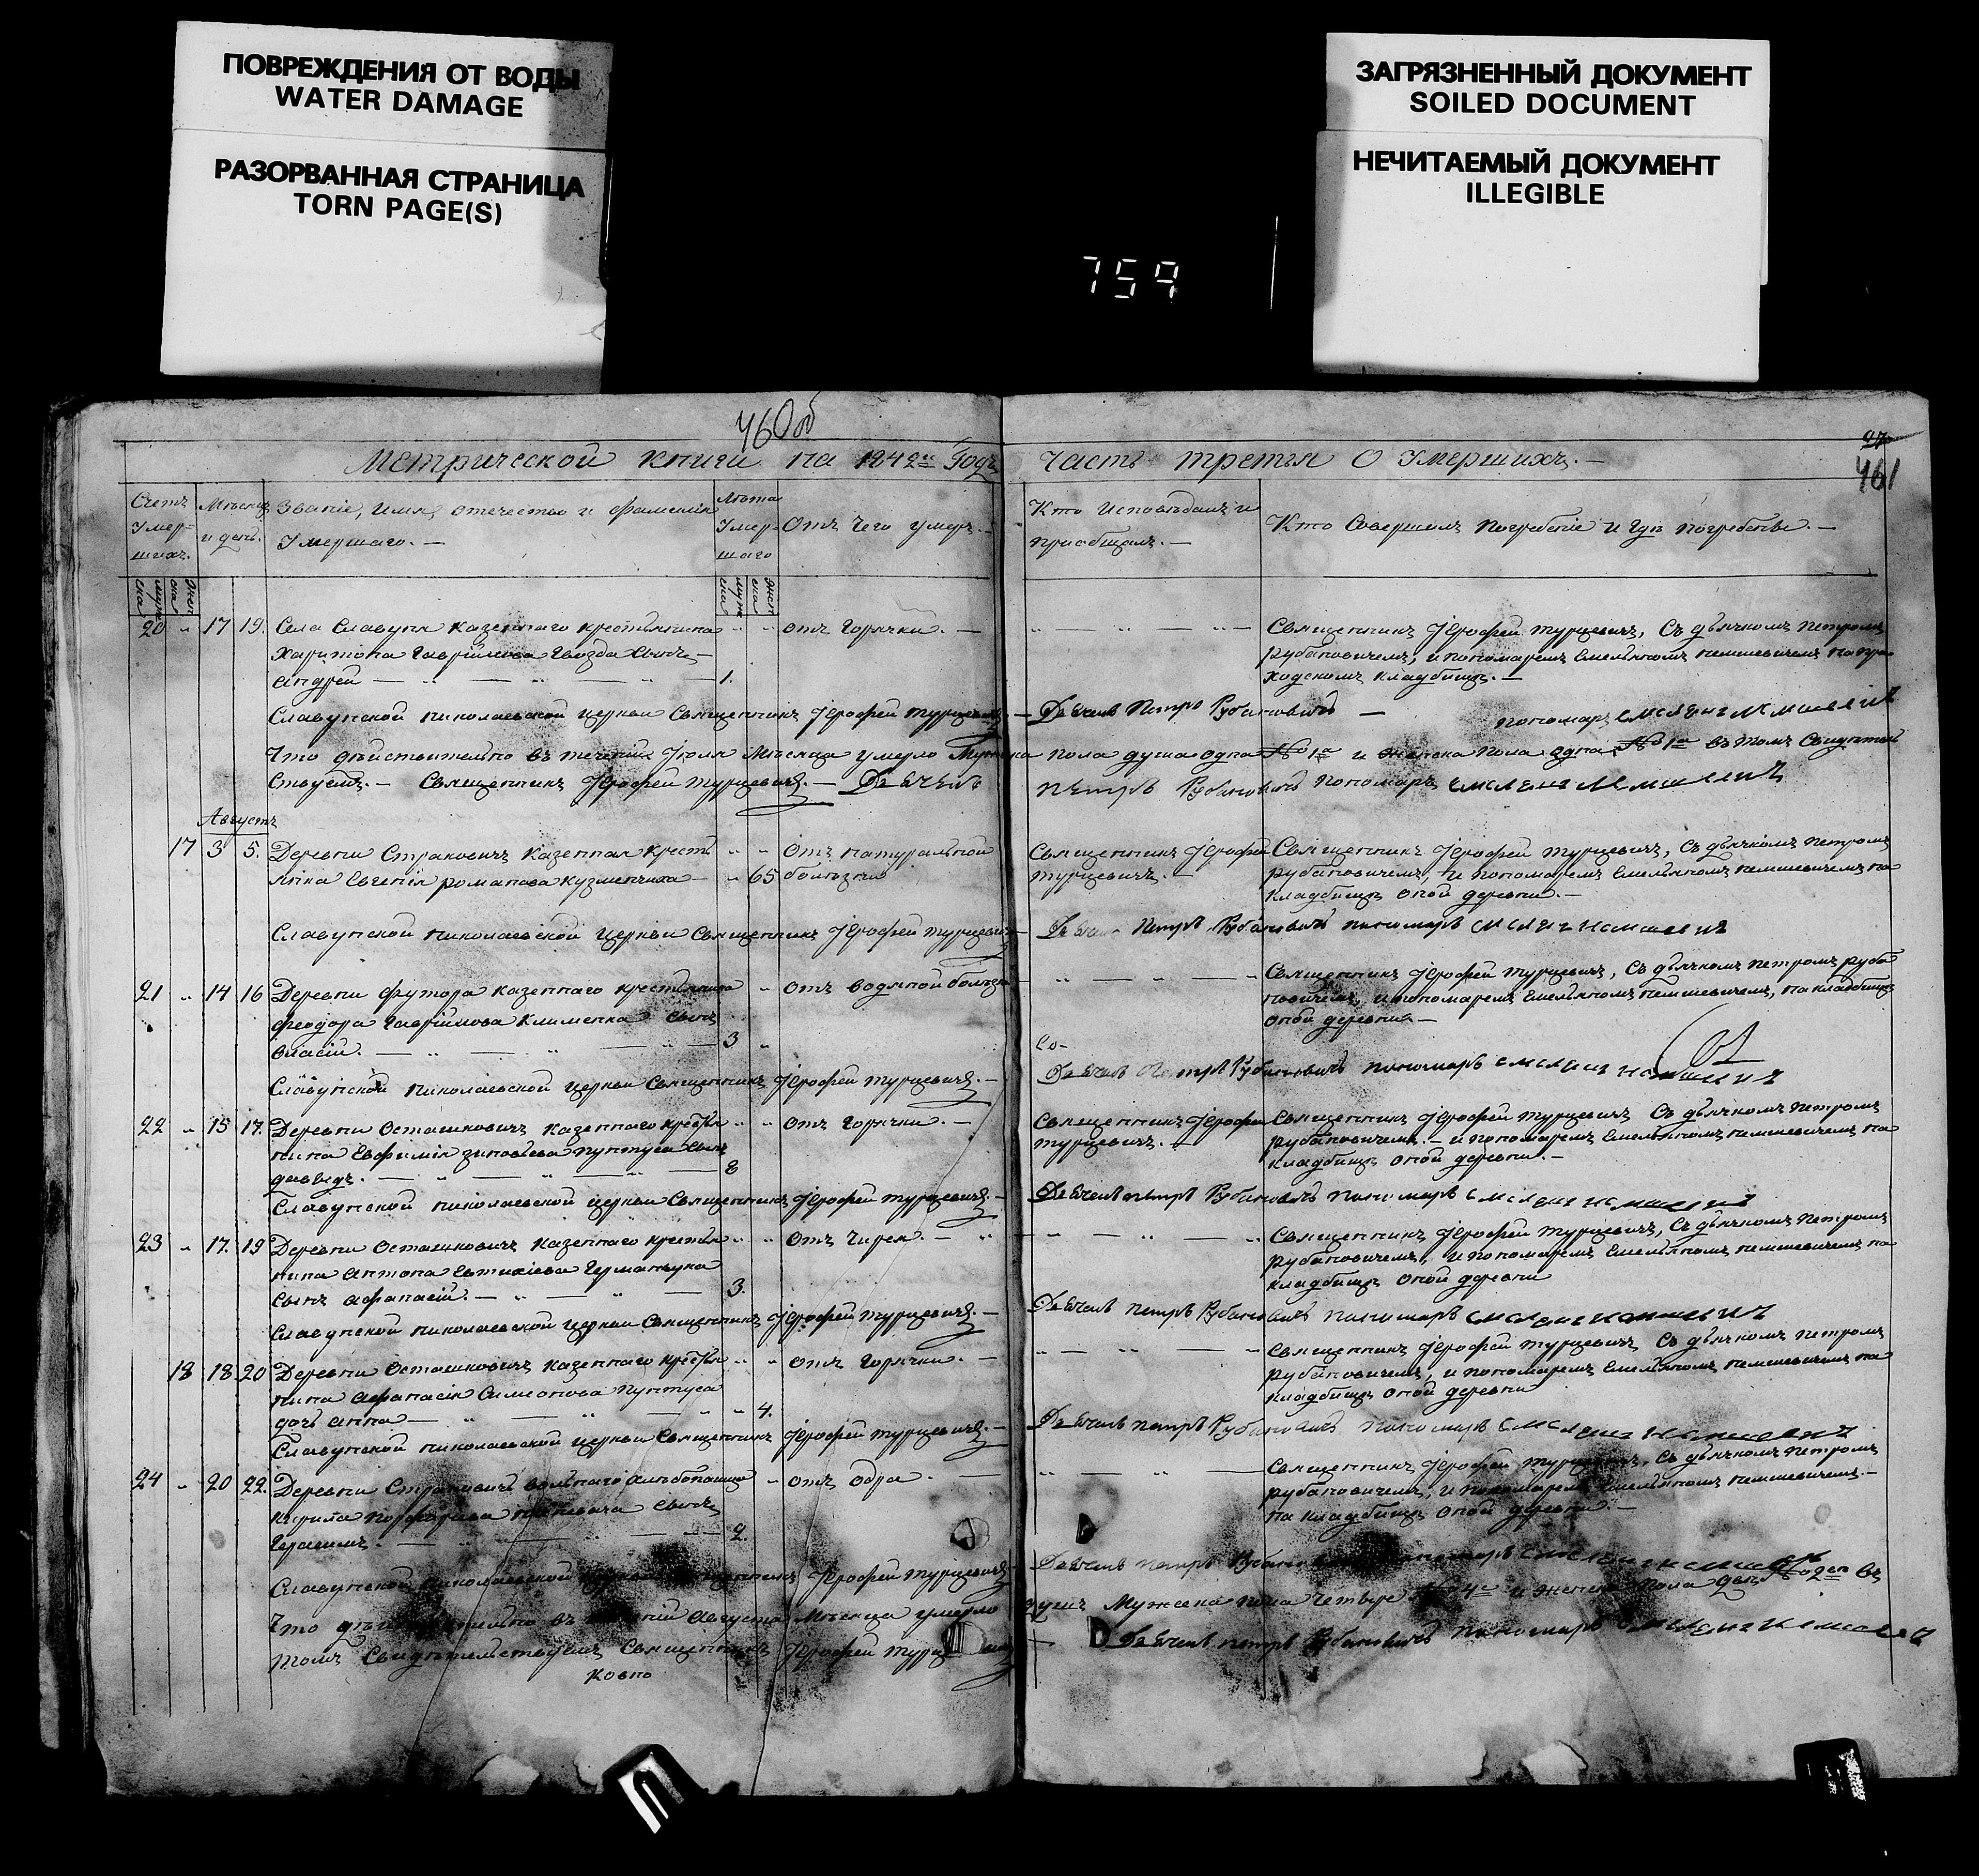 ПОВРЕЖДЕНИЯ ОТ ВОДЫ
WATER DAMAGE
РАЗОРВАННАЯ СТРАНИЦА
TORN PAGE(S)
ЗАГРЯЗНЕННЫЙ ДОКУМЕНТ
SOILED DOCUMENT
НЕЧИТАЕМЫЙ ДОКУМЕНТ
ILLEGIBLE
759
460об
27
461
Метрической книги на 1842й Годъ часть третья о умершихъ.—
Счетъ умер-шихъ.
Мѣсяцъ и день.
Званіе, имя, отечество и фамилія умершаго.—
Лѣта умер-шаго
Отъ чего умеръ.—
Кто исповѣдалъ и пріобщалъ.—
Кто совершалъ погребеніе и гдѣ погребены.—
20 " 17 19. Села Славупя казеннаго крестьянина " " отъ горячки.—
Харитона Гаврилова Гвозда сынъ
Андрей — " — " — 1.
Священникъ Іерофей Турцевичъ, съ дьячкомъ Петромъ
Рубановичемъ, и пономаремъ Емельяномъ Немшевичемъ на при-
ходскомъ кладбищѣ.—
Славупской николаевской церкви Священникъ Іерофей Турцевичъ.— Дьячекъ Петръ Рубановичъ — пономарь
Что дѣйствительно въ теченіи Іюля мѣсяца умерло Мужеска пола душа одна № 1а и женска пола одна № 1а въ томъ свидѣтель-
ствуетъ.— Священникъ Іерофей Турцевичъ.— Дьячекъ Петръ Рубановичъ пономарь
Августъ
17 3 5. Деревни Страковичъ казенная кресть- " " отъ натуральной
янка Евгенія Романова Кузменчиха — " 65 болѣзни
Священникъ Іерофей
Турцевичъ.—
Священникъ Іерофей Турцевичъ, съ дьячкомъ Петромъ
Рубановичемъ, и пономаремъ Емельяномъ Немшевичемъ на
кладбищѣ оной деревни.—
Славупской николаевской церкви Священникъ Іерофей Турцевичъ Петръ Рубановичъ пономарь
21 " 14 16 Деревни Футора казеннаго крестьянина " отъ водяной болѣзни
Феодора Гаврилова Клименка сынъ
Власій.— " — " — 3 "
Священникъ Іерофей Турцевичъ, съ дьячкомъ Петромъ Руба-
новичемъ, и пономаремъ Емельяномъ Немшевичемъ, на кладбищѣ
оной деревни.—
Славупской николаевской церкви Священникъ Іерофей Турцевичъ.— Дьячекъ Петръ Рубановичъ пономарь
22 " 15 17. Деревни Осташковичъ казеннаго крестья- " " отъ горячки.—
нина Евфимія Зиновіева Пунтуса сынъ
Давидъ.— " — " — 8
Священникъ Іерофей
Турцевичъ.—
Священникъ Іерофей Турцевичъ съ дьячкомъ Петромъ
Рубановичемъ.— и пономаремъ Емельяномъ Немшевичемъ на
кладбищѣ оной деревни.—
Славупской николаевской церкви Священникъ Іерофей Турцевичъ.— Дьячекъ Петръ Рубановичъ пономарь
23 " 17. 19 Деревни Осташковичъ казеннаго крестья- " " отъ чирея.—
нина Антона Евтихіева Германчука
сынъ Афанасій.— " — " — 3.
Священникъ Іерофей Турцевичъ, съ дьячкомъ Петромъ
Рубановичемъ, и пономаремъ Емельяномъ Немшевичемъ на
кладбищѣ оной деревни
Славупской николаевской церкви Священникъ Іерофей Турцевичъ.— Дьячекъ Петръ Рубановичъ пономарь
18 18 20 Деревни Осташковичъ казеннаго крестья- " " отъ горячки.—
нина Афанасія Симеонова Пунтуса
дочь Анна — " — " — " 4.
Священникъ Іерофей Турцевичъ съ дьячкомъ Петромъ
Рубановичемъ, и пономаремъ Емельяномъ Немшевичемъ на
кладбищѣ оной деревни
Славупской николаевской церкви Священникъ Іерофей Турцевичъ.— Дьячекъ Петръ Рубановичъ пономарь
24 " 20 22. Деревни Страковичъ вольнаго хлѣбопашца " отъ одра.—
Кирила сынъ
Герасимъ.— " — 2.
Священникъ Іерофей Турцевичъ, съ дьячкомъ Петромъ
Рубановичемъ, и пономаремъ Емельяномъ Немшевичемъ —
на кладбищѣ оной деревни.—
Славупской николаевской Іерофей Турцевичъ Дьячекъ Петръ пономарь
Что въ Августа мѣсяца умерло душъ Мужеска пола четыре № 4е и женска пола двѣ № 2ѣ въ
томъ свидѣтельствуетъ Священникъ Іерофей Дьячекъ Петръ Рубановичъ пономарь